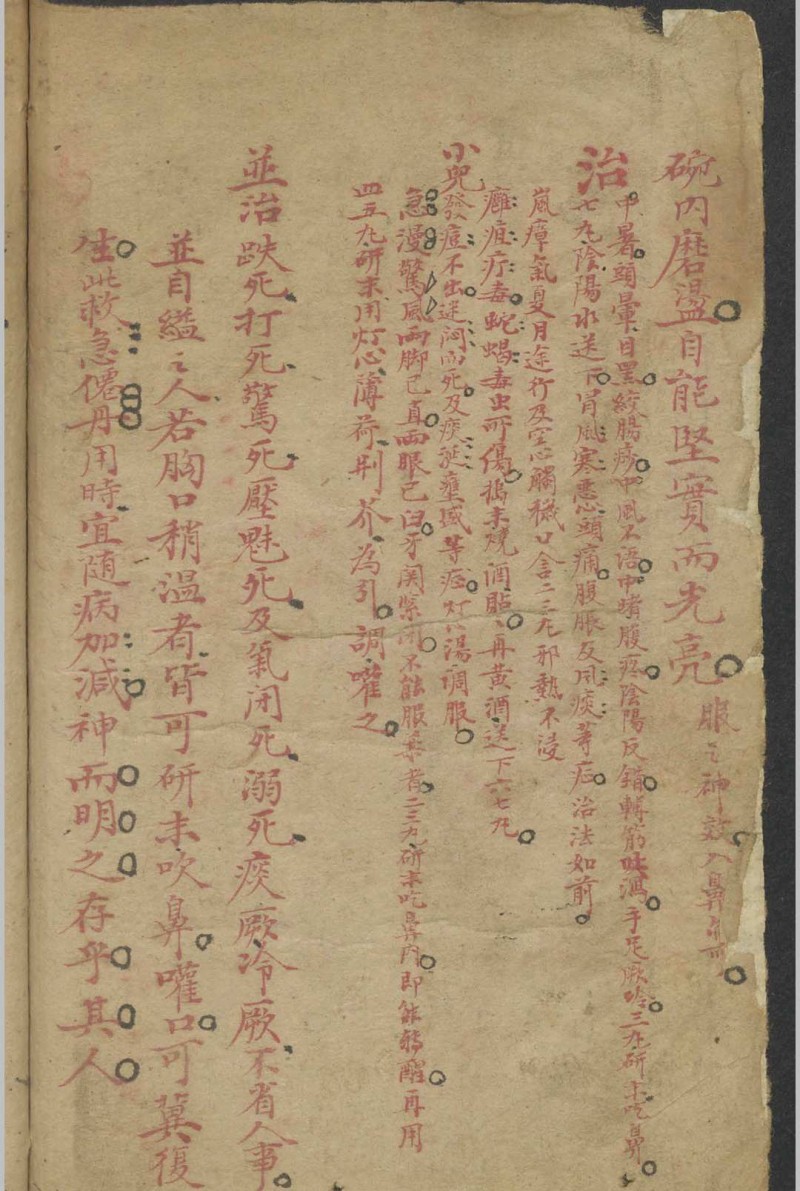 碗內磨盪自能堅實而光亮
服之神效入鼻亦可
治
中暑頭暈目黑絞腸痧中風不语中堵腹疼陰陽反錯轉筋吐瀉手足厥冷三九研末吃鼻
七九陰陽水送下冐風寒惡心頭痛腹脹反風痰等症治法如前
嵐瘴氣夏月途行及空心觸穢口含二三九邪熱不浸
癰疽疔毒蛇蝎毒虫所傷搗末燒酒貼再黄酒送下六七九
小兒發痘不出迷闷而死及痰涎壅盛等症灯心湯調服
急漫驚風两脚已直両眼已白牙関緊闭不能服藥者二三九研末吃鼻内即能甦醒再用
四五九研末用灯心薄荷荆芥為引調嚾之
並治跌死打死驚死壓魅死及氣闭死溺死痰厥冷厥不省人事
並自縊之人若胸口稍温者皆可研末吹鼻嚾口可冀復
生此救急僊丹用時宜随病加減神而明之存乎其人